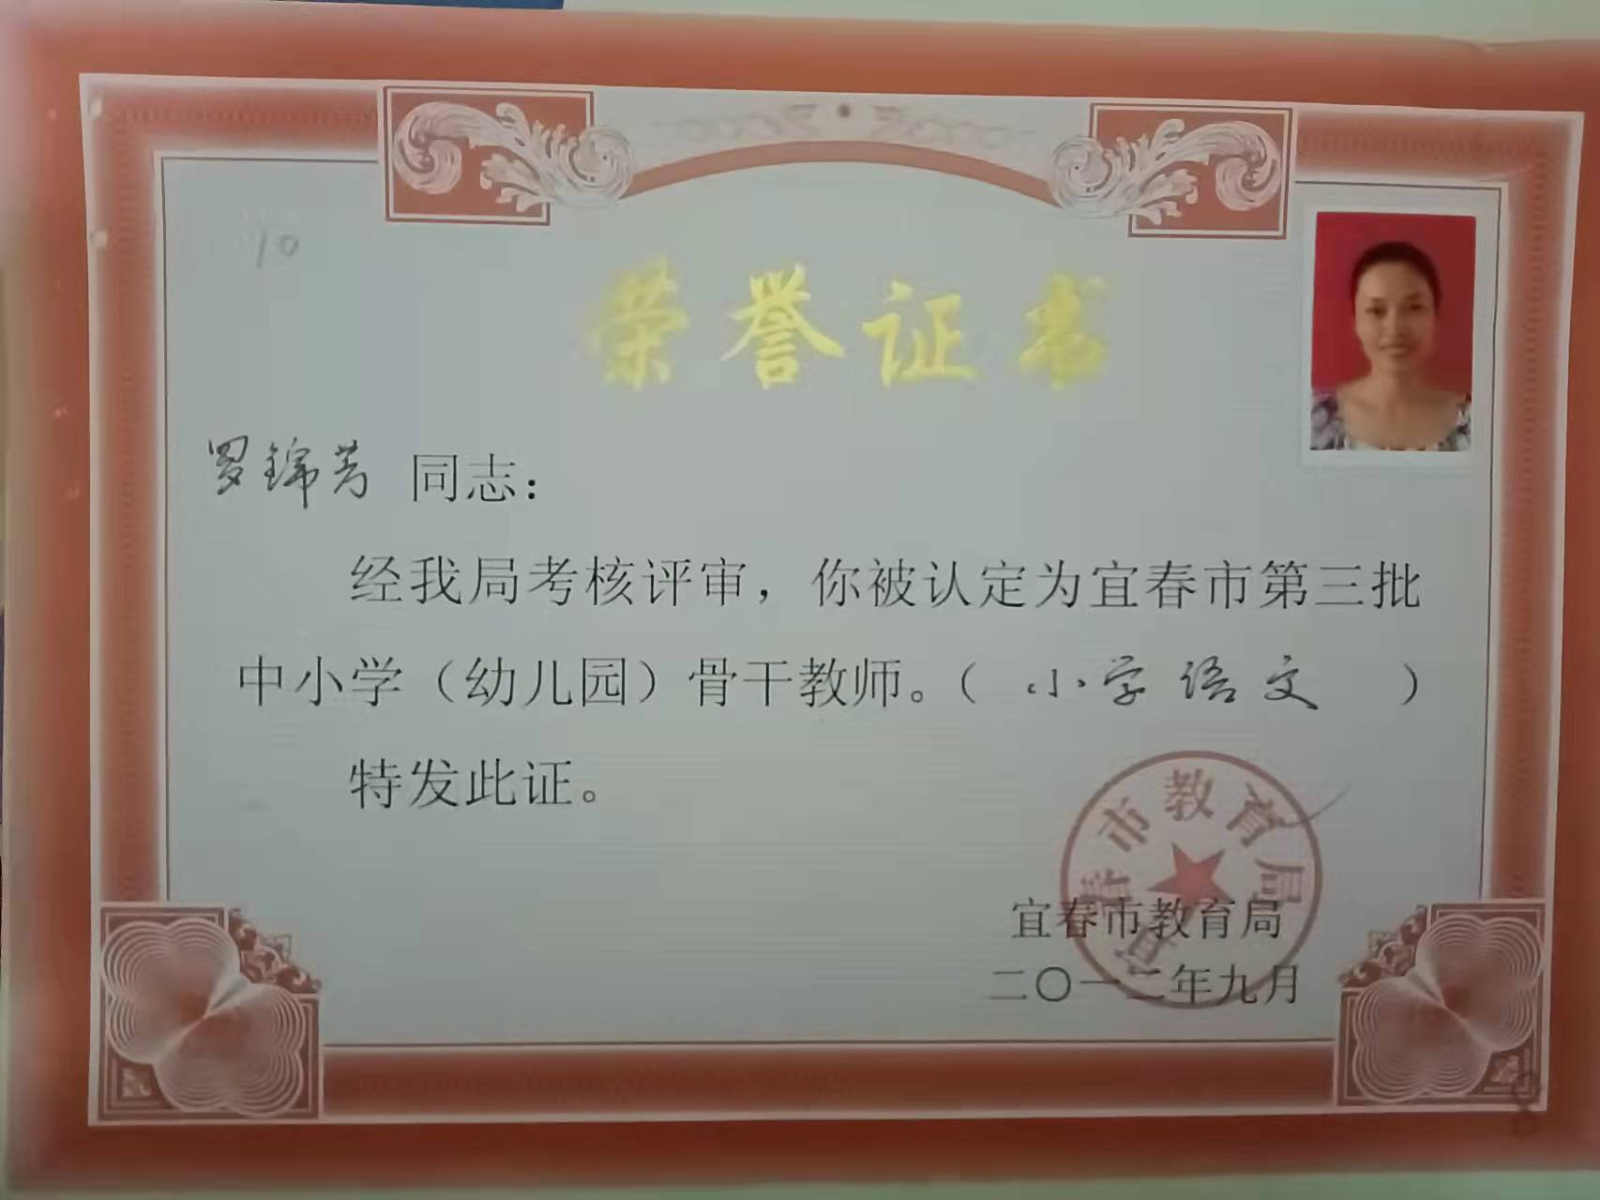 10
荣誉证书
罗锦芳 同志：
经我局考核评审，你被认定为宜春市第三批
中小学（幼儿园）骨干教师。（ 小学语文 ）
特发此证。
宜春市教育局
宜春市教育局
二〇一二年九月
8